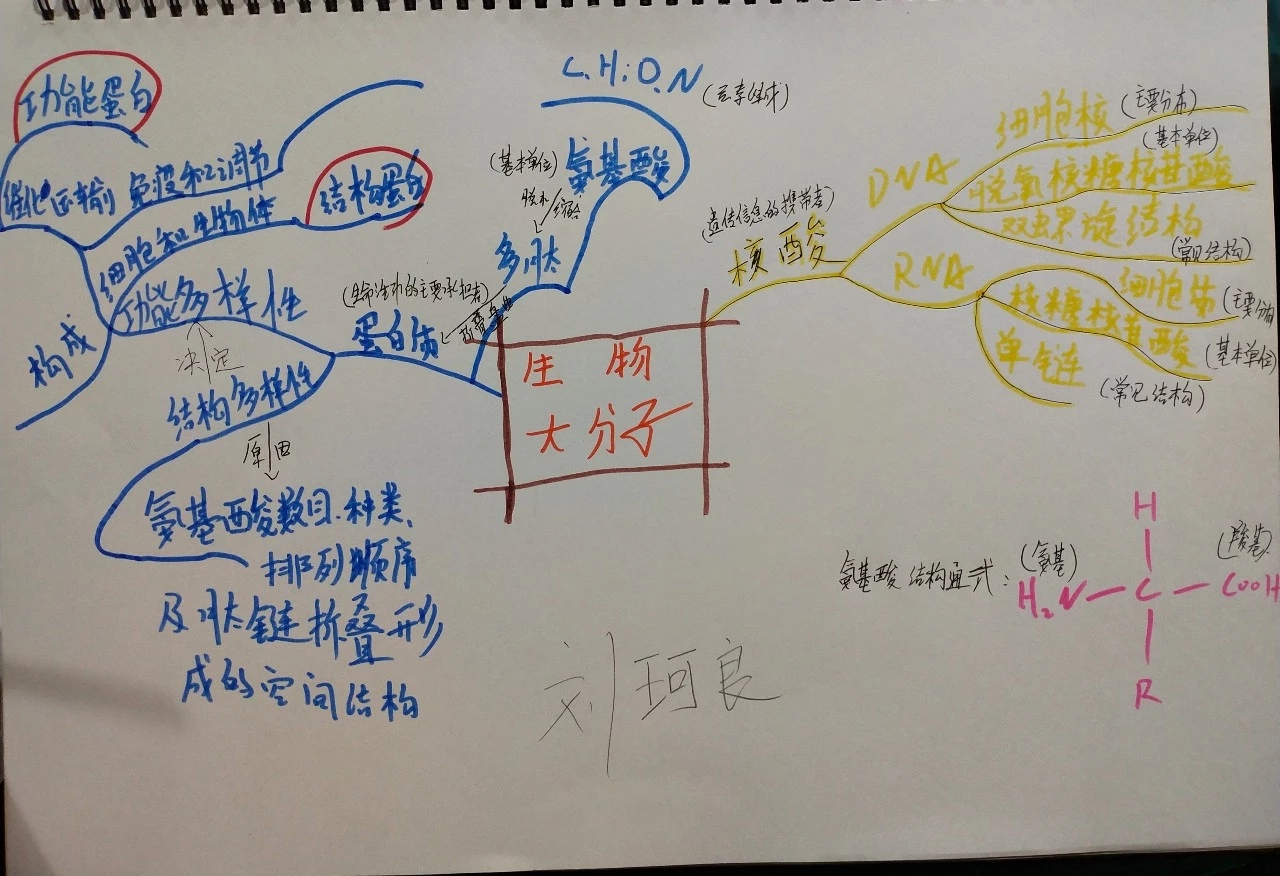 功能蛋白
催化 运输 免疫和调节
结构蛋白
细胞和生物体
构成
功能多样性
决定
结构多样性
原因
氨基酸数目、种类、
排列顺序
及肽链折叠形
成的空间结构
(生命活动的主要承担者)
蛋白质
多肽
脱水
缩合
(基本单位)
氨基酸
C.H.O.N
(元素组成)
生物
大分子
(遗传信息的携带者)
核酸
DNA
细胞核
(主要分布)
(基本单位)
脱氧核糖核苷酸
双螺旋结构
(常见结构)
RNA
细胞质
(主要分布)
核糖核苷酸
(基本单位)
单链
(常见结构)
氨基酸结构通式:
(氨基)
(羧基)
H
H₂N—C—COOH
R
刘珂良